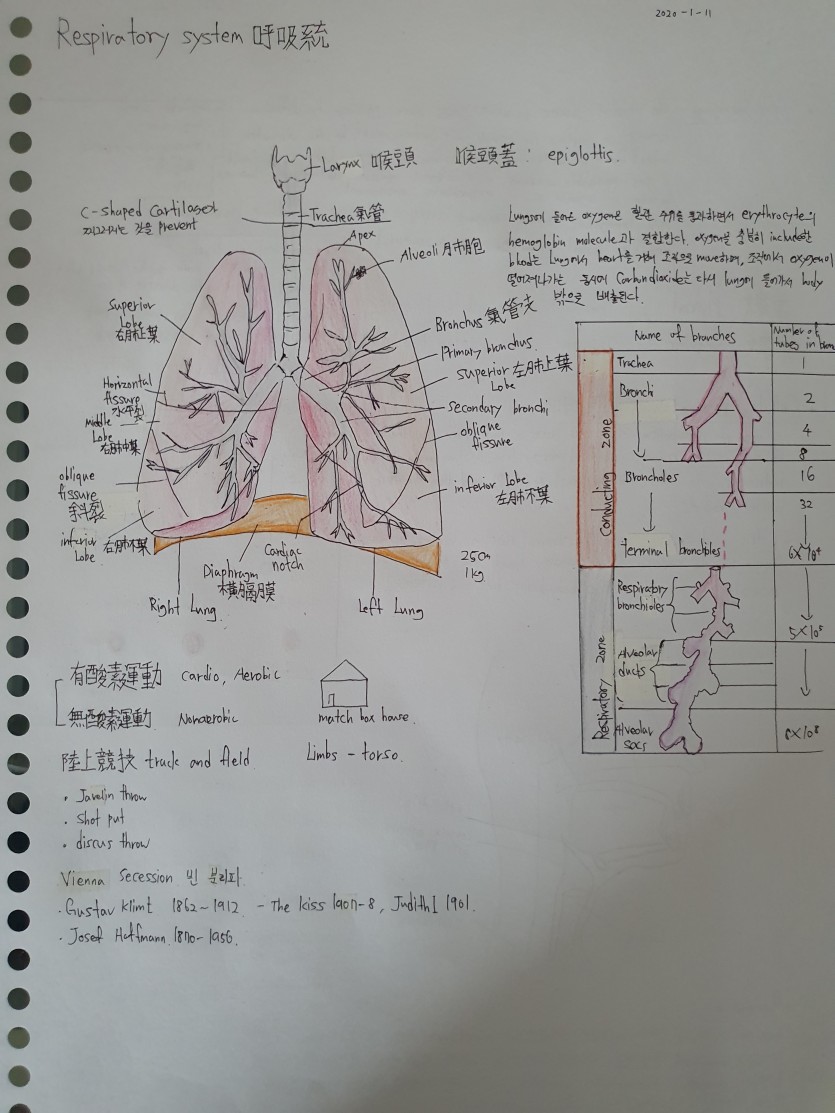 2020-1-11
Respiratory system 呼吸統
Larynx 喉豆頁
喉頭蓋 : epiglottis.
C-shaped Cartilages
찌그러지는 것을 prevent
Trachea 氣管
Apex
Alveoli 月市胞
Lungs에 들어온 oxygen은 혈관 주위를 통과하면서 erythrocyte의
hemoglobin molecule과 결합한다. oxygen을 충분히 included한
blood는 Lung에서 heart을 거쳐 조직으로 move하며, 조직에서 oxygen이
떨어져나가는 동시에 Carbondioxide는 다시 lung에 들어가서 body
밖으로 배출된다.
Superior
Lobe
右肺上葉
Bronchus 氣管支
Primary bronchus.
superior 左肺上葉
Lobe
Horizontal
fissure
水平裂
middle
Lobe
右肺中葉
secondary bronchi
oblique
fissure
oblique
fissure
斜裂
inferior Lobe
左肺下葉
inferior
Lobe 右肺下葉
Cardiac
notch
Diaphragm
横膈膜
25cm
1kg
Right Lung
Left Lung
Name of branches
Number of
tubes in
Conducting zone
Trachea
1
Bronchi
2
4
8
Bronchioles
16
32
terminal bronchioles
6X10⁴
Respiratory zone
Respiratory
bronchioles
5X10⁵
Alveolar
ducts
Alveolar
sacs
8X10⁸
有酸素運動 Cardio, Aerobic
無酸素運動 Nonaerobic
match box house.
陸上競技 track and field
Limbs - torso.
· Javelin throw
· Shot put
· discus throw
Vienna Secession 빈 분리파
· Gustav Klimt 1862~1912 - The kiss 1907-8, Judith I 1901.
· Josef Hoffmann. 1870-1956.